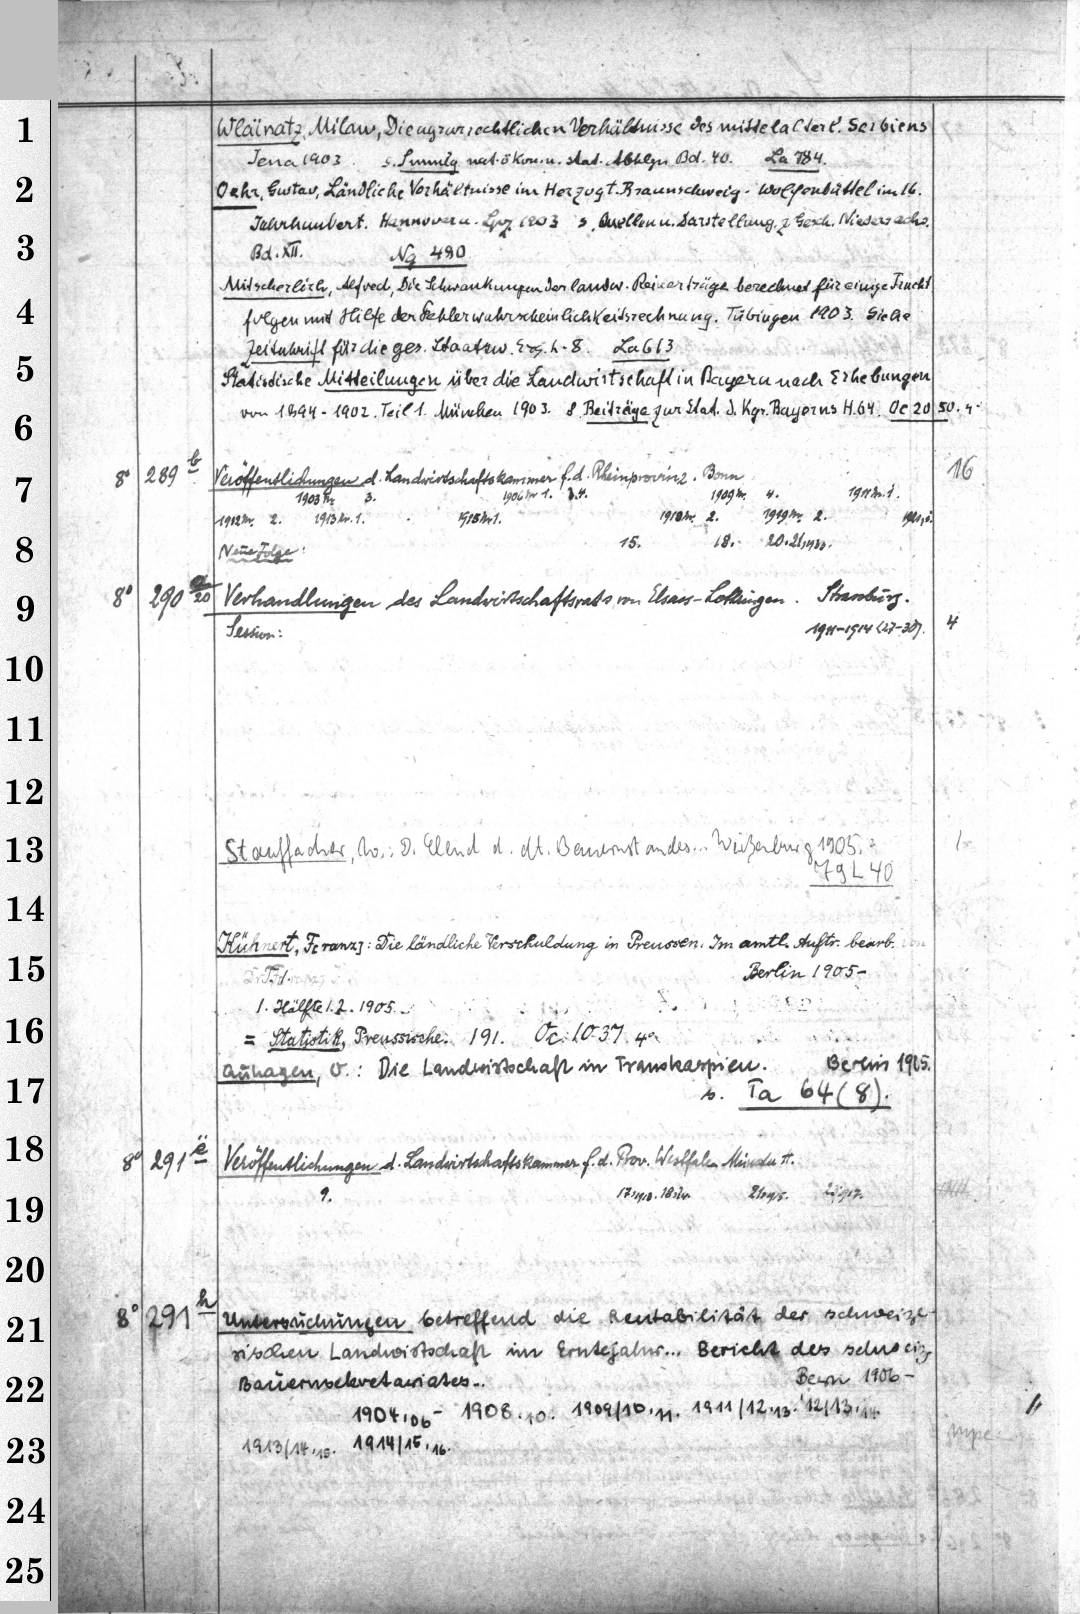 Wlaïnatz, Milan, Die agrarrechtlichen Verhältnisse des mittelalterl. Serbiens
Jena 1903. s. Smmlg nat.ökon. u. stat. Abhlgn Bd. 40. La 784.
Oehr, Gustav, Ländliche Verhältnisse im Herzogt. Braunschweig-Wolfenbüttel im 16.
Jahrhundert. Hannover u. Lpz 1903 s. Quellen u. Darstellung. z. Gesch. Niedersachs.
Bd. XII. Ng 480
Mitscherlich, Alfred, Die Schwankungen der landw. Reinerträge berechnet für einige Frucht
folgen mit Hilfe der Fehlerwahrscheinlichkeitsrechnung. Tübingen 1903. Siehe
Zeitschrift für die ges. Staatsw. Erg. h. 8. La 613
Statistische Mitteilungen über die Landwirtschaft in Bayern nach Erhebungen
von 1894-1902. Teil 1. München 1903. s. Beiträge zur Stat. d. Kgr. Bayerns H. 64. Oc 2050. 4°
8° 289 b Veröffentlichungen d. Landwirtschaftskammer f. d. Rheinprovinz. Bonn 16
1903 Nr. 3. 1906 Nr 1. 3.4. 1909 Nr. 4. 1911 Nr. 1.
1912 Nr. 2. 1913 Nr. 1. 1915 Nr 1. 1918 Nr. 2. 1919 Nr. 2.
Neue Folge: 15. 18. 20.
8° 290 a/20 Verhandlungen des Landwirtschaftsrats von Elsass-Lothringen. Strassburg.
Session: 1911-1914 (27-30). 4
Stauffacher, W.: D. Elend d. dt. Bauernstandes... Weißenburg 1905. 1
79 L 40
Kühnert, F[ranz]: Die ländliche Verschuldung in Preussen. Im amtl. Auftr. bearb.
Berlin 1905-
1. Hälfte 1.2. 1905.
= Statistik, Preussische. 191. Oc 1037 4°
Auhagen, O.: Die Landwirtschaft in Transkaspien. Berlin 1905.
s. Ta 64 (8).
8° 291 e Veröffentlichungen d. Landwirtschaftskammer f. d. Prov. Westfalen Münster
9.
8° 291 h Untersuchungen betreffend die Rentabilität der schweize-
rischen Landwirtschaft im Erntejahr... Bericht des schweiz.
Bauernsekretariates.. Bern 1906-
1904.06- 1908.10. 1909/10.11. 1911/12.13. 12/13.14.
1913/14.15. 1914/15.16.
1
2
3
4
5
6
7
8
9
10
11
12
13
14
15
16
17
18
19
20
21
22
23
24
25